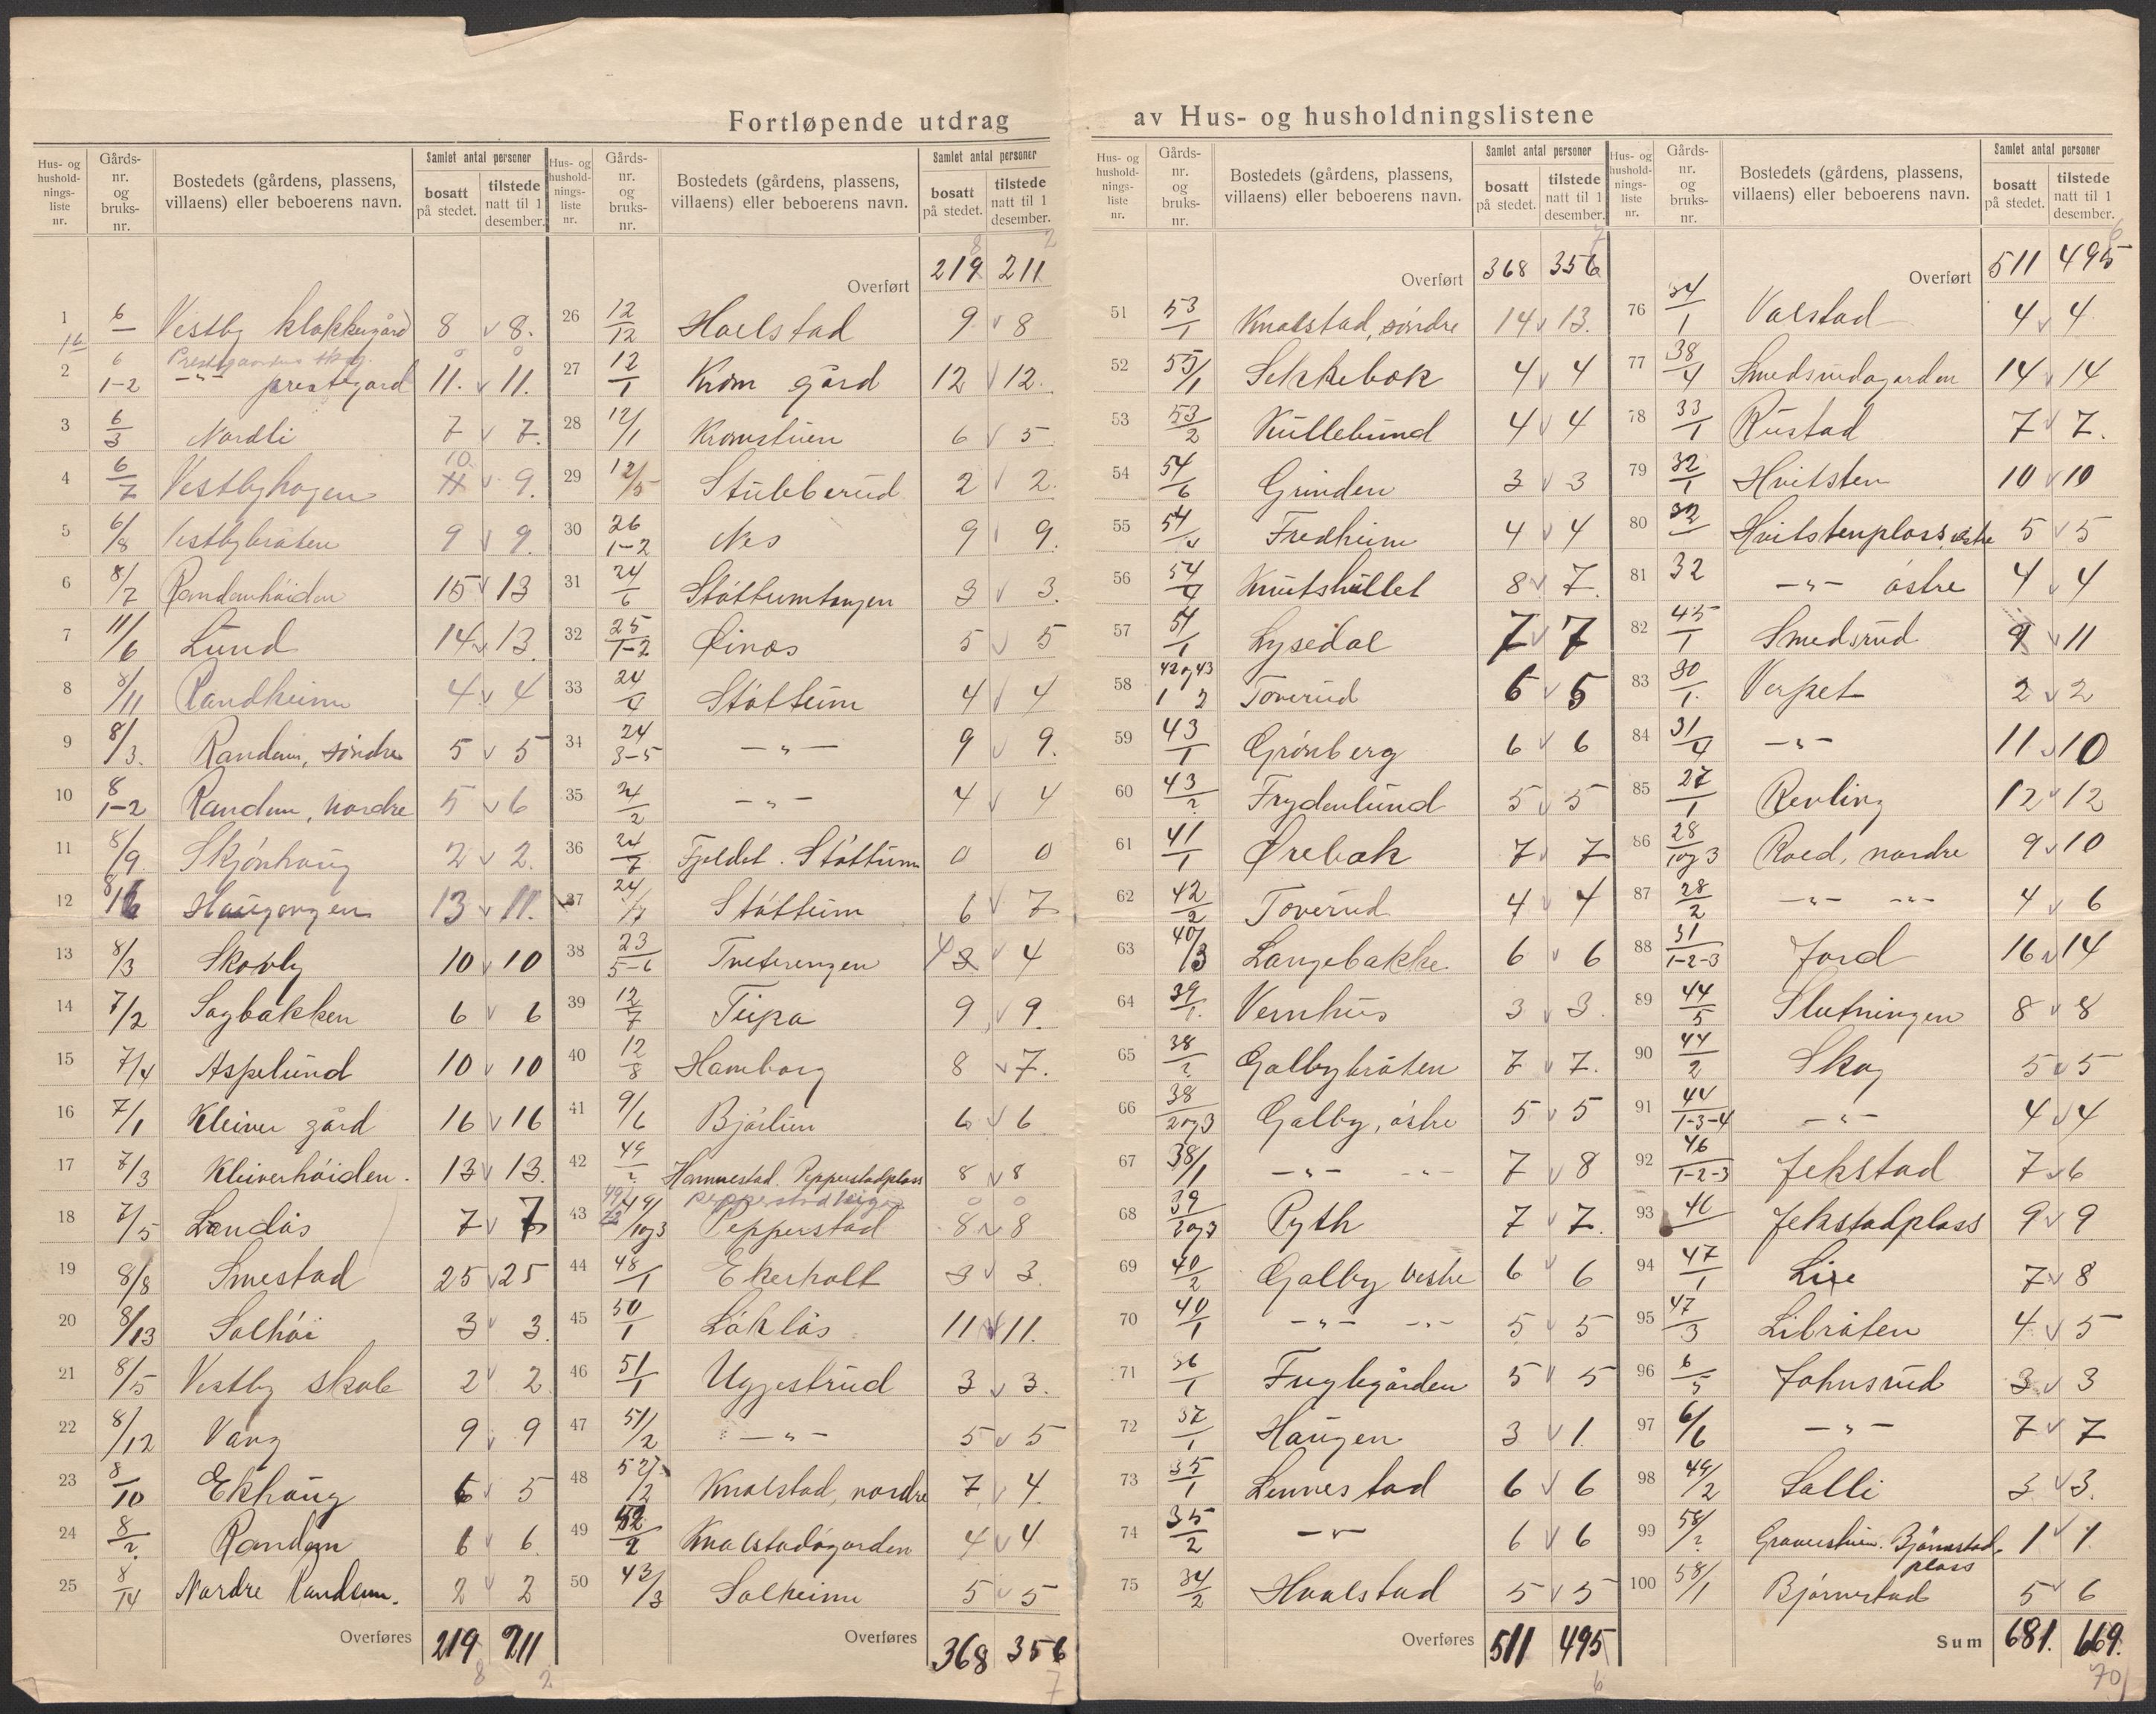 Fortløpende utdrag av Hus- og husholdningslistene
Hus- og hushold-nings-liste nr. | Gårds-nr. og bruks-nr. | Bostedets (gårdens, plassens, villaens) eller beboerens navn. | Samlet antal personer | bosatt på stedet. | tilstede natt til 1 desember.
1 6/— Vestby klokkergård 8 v 8.
2 6/1-2 —"— prestegård 11. v 11.
3 6/3 Nordli 7 v 7.
4 6/7 Vestbyhagen 10 v 9.
5 6/8 Vestbybråten 9 v 9.
6 8/7 Randemhöiden 15 v 13
7 11/6 Lund 14 v 13.
8 8/11 Randheim 4 v 4
9 8/3. Randem, söndre 5 v 5
10 8/1-2 Randem, nordre 5 v 6
11 8/9. Skjönhaug 2 v 2.
12 Haugongen 13 v 11.
13 8/3 Skovly 10 v 10
14 7/2 Sagbakken 6 v 6
15 7/4 Aspelund 10 v 10
16 7/1 Kleiver gård 16 v 16
17 7/3 Kleiverhöiden. 13 v 13.
18 7/5 Landås 7 v 7
19 8/8 Smestad 25 v 25
20 8/13 Solhöi 3 v 3.
21 8/5 Vestby skole 2 v 2
22 8/12 Vang 9 v 9
23 8/10 Ekhaug 6 v 5
24 8/2. Randem 6 v 6.
25 8/14 Nordre Randem. 2 v 2
Overføres 219 211
8 2
Hus- og hushold-nings-liste nr. | Gårds-nr. og bruks-nr. | Bostedets (gårdens, plassens, villaens) eller beboerens navn. | Samlet antal personer | bosatt på stedet. | tilstede natt til 1 desember.
8 2
Overført 219 211
26 12/12 Hoelstad 9 v 8
27 12/1 Krom gård 12 v 12.
28 12/1 Kromstuen 6 v 5
29 12/5 Stubberud 2 v 2.
30 26/1-2 Nes 9 v 9.
31 24/6 Stöttumtangen 3 v 3.
32 25/1-2 Öinås 5 v 5
33 24/4 Stöttum 4 v 4
34 24/3-5 —"— 9 v 9.
35 24/2 —"— 4 v 4
36 24/7 Fjeldet. Stöttum 0 0
37 24/17 Stöttum 6 v 7
38 23/5-6 Tveterengen 4 3 v 4
39 12/7 Tupa 9 v 9.
40 12/8 Hamborg 8 v 7.
41 9/6 Björlien 6 v 6
42 49/? Hammestad. Pepperstadplass 8 v 8
43 49/1og3 Pepperstad 8 v 8
44 48/1 Ekerholt 3 v 3.
45 50/1 Löklås 11 v 11.
46 51/1 Uggestrud 3 v 3.
47 51/2 —"— 5 v 5
48 52/2 Knalstad, nordre 7 v 4.
49 52/2 Knalstadsgården 4 v 4
50 43/3 Solheim 5 v 5
Overføres 368 356
7
Hus- og hushold-nings-liste nr. | Gårds-nr. og bruks-nr. | Bostedets (gårdens, plassens, villaens) eller beboerens navn. | Samlet antal personer | bosatt på stedet. | tilstede natt til 1 desember.
7
Overført 368 356
51 53/1 Knalstad, söndre 14 v 13.
52 55/1 Sekkebæk 4 v 4
53 53/2 Kullebund 4 v 4
54 54/6 Grinden 3 v 3
55 54/4 Fredheim 4 v 4
56 54/4 Knutshullet 8 v 7.
57 54/1 Lysedal 7 v 7
58 42og43/1 2 Toverud 6 v 5
59 43/1 Grönberg 6 v 6
60 43/2 Frydenlund 5 v 5
61 41/1 Ørebæk 7 v 7
62 42/2 Toverud 4 v 4
63 40/3 Langebakke 6 v 6
64 39/1. Vernhus 3 v 3.
65 38/? Galbybråten 7 v 7.
66 38/2og3 Galby, östre 5 v 5
67 38/1 —"— —"— 7 v 8
68 39/2og3 Pyth 7 v 7.
69 40/2 Galby vestre 6 v 6
70 40/1 —"— —"— 5 v 5
71 36/1 Fuglegården 5 v 5
72 37/1 Haugen 3 v 1.
73 35/1 Lennestad 6 v 6
74 35/2 —"— 6 v 6
75 34/2 Hvalstad 5 v 5
Overføres 511 495
6
Hus- og hushold-nings-liste nr. | Gårds-nr. og bruks-nr. | Bostedets (gårdens, plassens, villaens) eller beboerens navn. | Samlet antal personer | bosatt på stedet. | tilstede natt til 1 desember.
6
Overført 511 495
76 34/1 Valstad 4 v 4
77 38/4 Smedsrudsgården 14 v 14
78 33/1 Rustad 7 v 7.
79 32/1 Hvitsten 10 v 10
80 32/— Hvitstenplass, vestre 5 v 5
81 32 —"— östre 4 v 4
82 45/1 Smedsrud 9 v 11
83 30/1. Verpet 2 v 2
84 31/4 —"— 11 v 10
85 27/1 Revling 12 v 12
86 28/1og3 Roed, nordre 9 v 10
87 28/2 —"— —"— 4 v 6
88 31/1-2-3 Jord 16 v 14
89 44/5 Slutningen 8 v 8
90 44/2 Skog 5 v 5
91 44/1-3-4 —"— 4 v 4
92 46/1-2-3 Jekstad 7 v 6
93 46/— Jekstadplass 9 v 9
94 47/1 Lire 7 v 8
95 47/3 Libråten 4 v 5
96 6/5 Johnsrud 3 v 3
97 6/6 —"— 7 v 7
98 49/2 Solli 3 v 3.
99 58/? Graverstuen. Björnestad-plass 1 v 1.
100 58/1 Björnestad 5 v 6
Sum 681. 669.
70